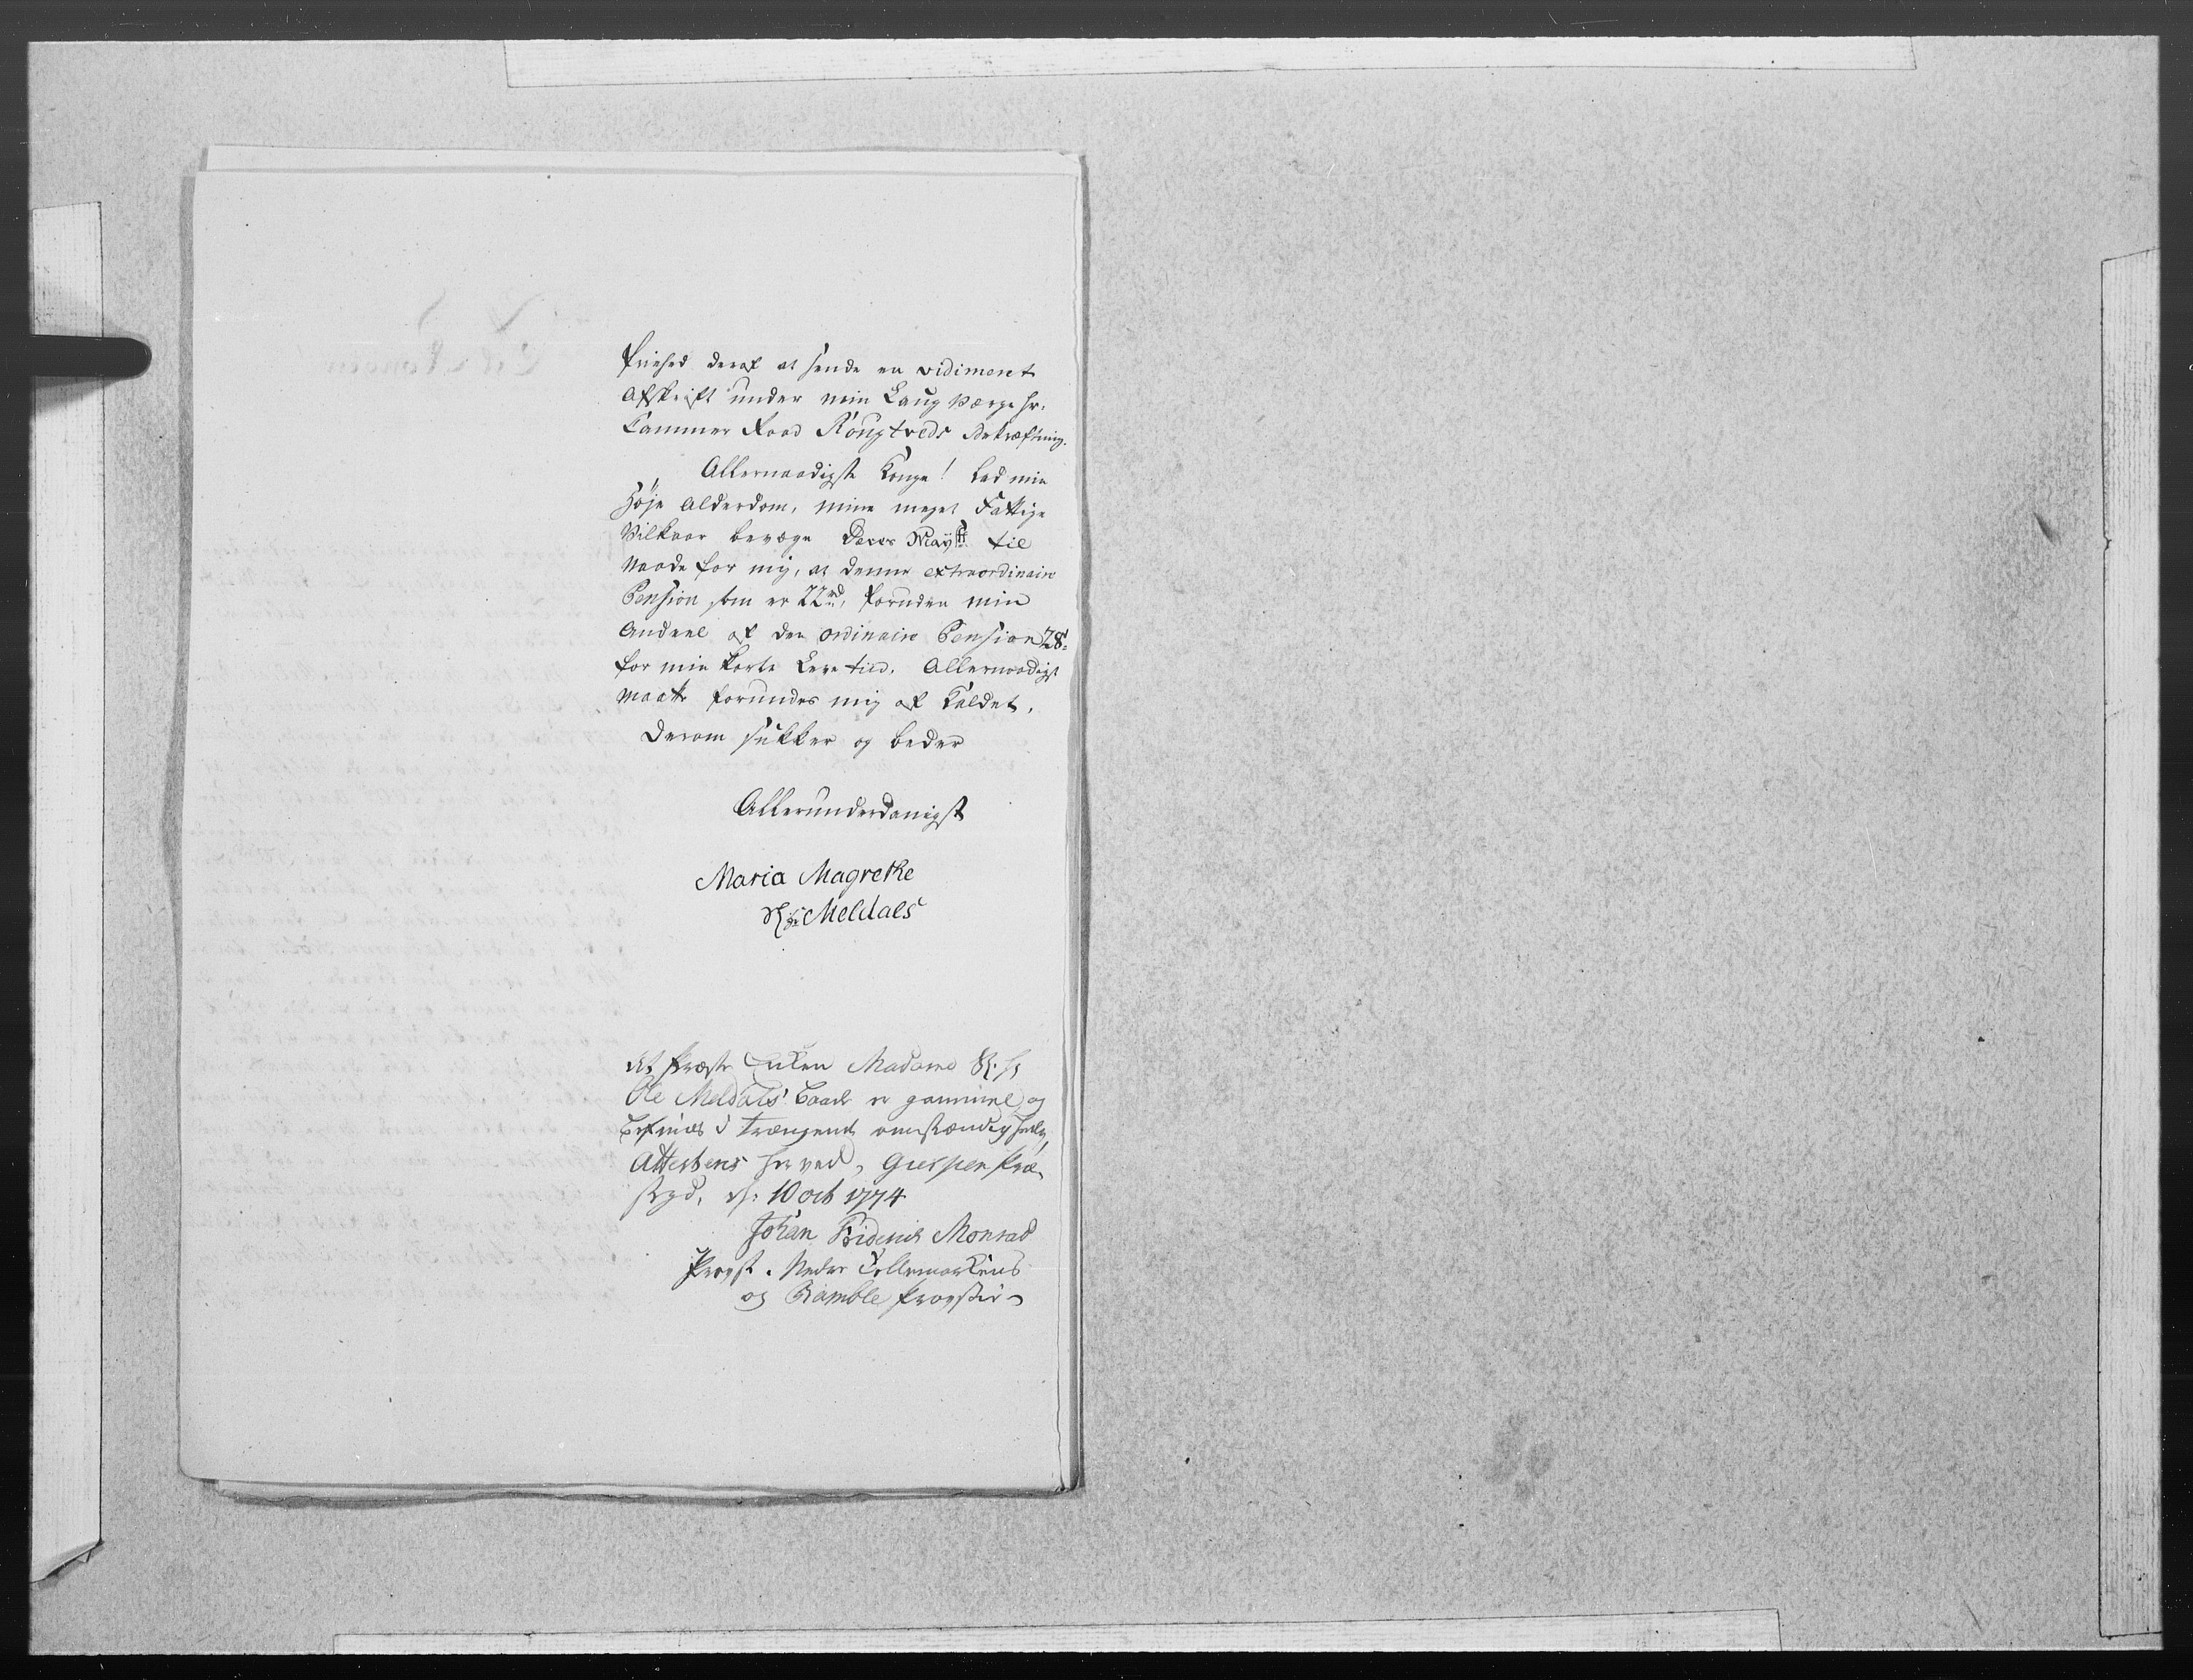 friehed deraf at sende en vidimeret
Afskrift under min Laug Værge Hr:
Cammer Raad Rougtveds Bekræftning.
Allernaadigste Konge! Lad min
høje Alderdom, mine meget Fattige
Vilkaar bevæge Deres Mayst: til
Naade for mig, at denne extraordinaire
Pension som er 22rd, foruden min
Andeel af den ordinaire Pension 28:
for min korte Leve tiid, Allernaadigst
maatte forundes mig af Kaldet.
Derom sukker og beder
Allerunderdanigst
Maria Magrethe
Meldals
At Præste Enken Madame
Ole Meldals baade er gammel og
befindes i trængende omstændigheder,
Attesteres herved, Gierpen Præ-
stegd, d: 10 oct 1774
Johan Friderich Monrad
Provst i Neder Tellemarkens
og Bamble Provstie